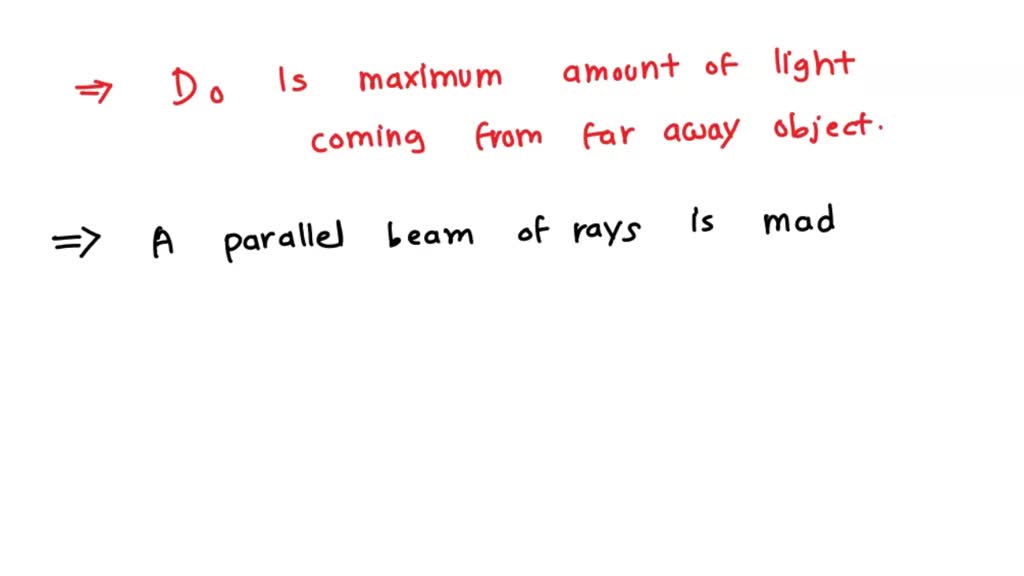 ⇒ Do Is maximum amount of light
coming from far away object.
⇒ A parallel beam of rays is mad